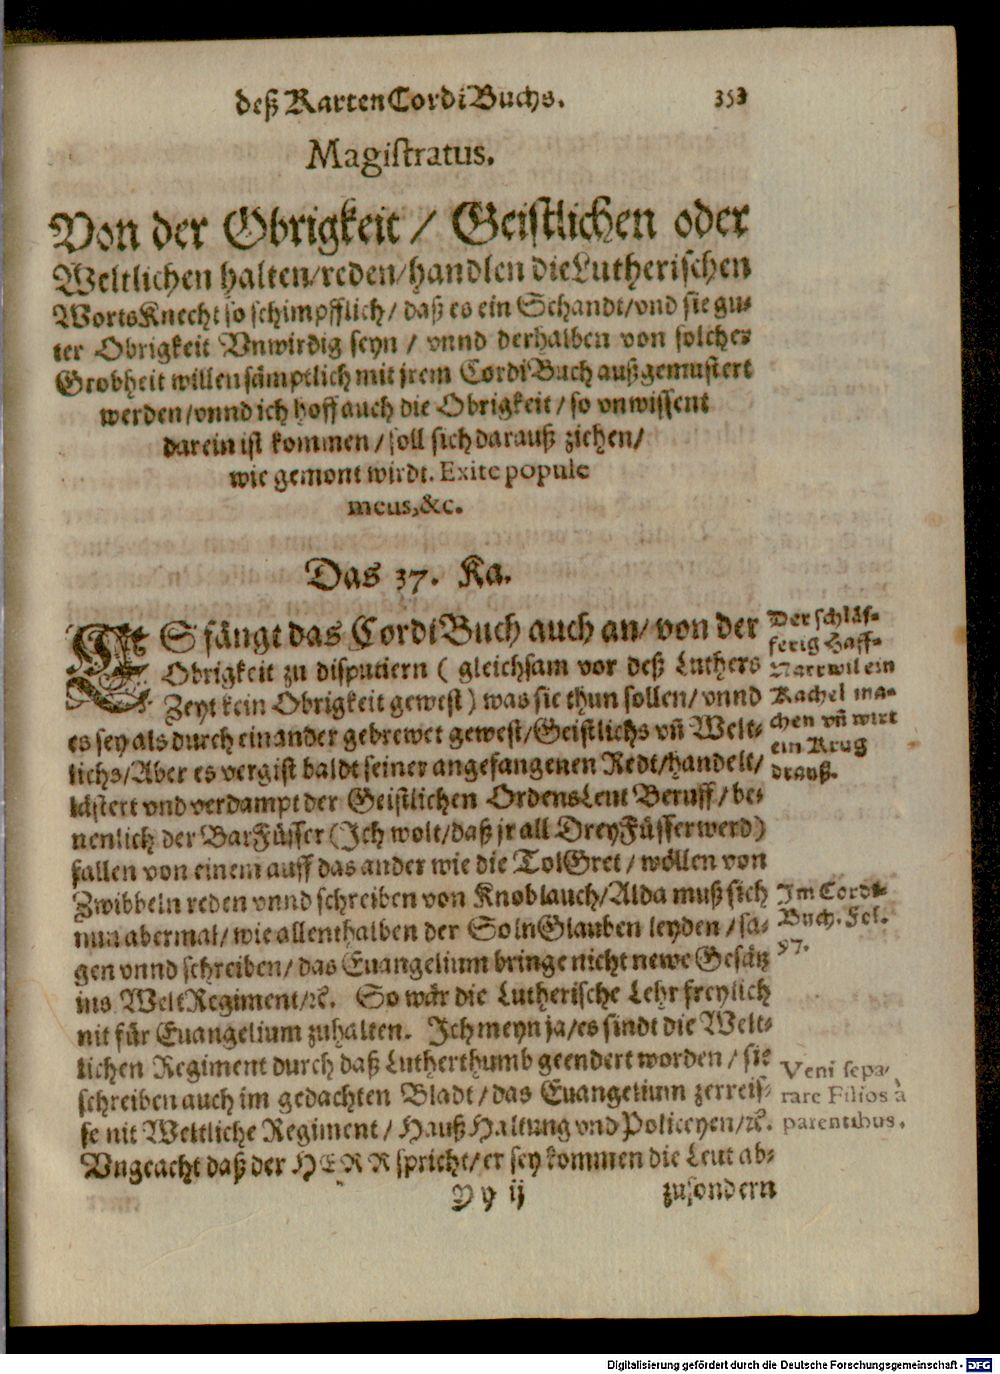 deß KartenCordiBuchs. 353
Magistratus.
Von der Obrigkeit / Geistlichen oder
Weltlichen halten/reden/handlen die Lutherischen
WortsKnecht so schimpfflich/ daß es ein Schandt/vnd sie gu-
ter Obrigkeit Vnwirdig seyn / vnnd derhalben von solcher
Grobheit willen sämptlich mit jrem CordiBuch außgemustert
werden/vnnd ich hoff auch die Obrigkeit/ so vnwissent
darein ist kommen/ soll sich darauß ziehen/
wie gemont wirdt. Exite popule
meus,&c.
Das 37. Ka.
ES fängt das CordiBuch auch an/ von der
Obrigkeit zu disputiern ( gleichsam vor deß Luthers
Zeyt kein Obrigkeit gewest) was sie thun sollen/ vnnd
es sey als durch einander gebrewet gewest/Geistlichs vñ Welt-
lichs/Aber es vergist baldt seiner angefangenen Redt/handelt/
lästert vnd verdampt der Geistlichen OrdensLeut Beruff/ be-
nenlich der BarFüsser (Ich wolt/daß jr all DreyFüsser werd)
fallen von einem auff das ander wie die TolGret / wöllen von
Zwibbeln reden vnnd schreiben von Knoblauch/Alda muß sich
nun abermal/ wie allenthalben der SolnGlauben leyden / sa-
gen vnnd schreiben/ das Euangelium bringe nicht newe Gesätz
ins WeltRegiment/ꝛc. So wär die Lutherische Lehr freylich
nit für Euangelium zuhalten. Ich meyn ja/es sindt die Welt-
lichen Regiment durch daß Lutherthumb geendert worden / sie
schreiben auch im gedachten Bladt /das Euangelium zerreis-
se nit Weltliche Regiment/ HaußHaltung vnd Policeyen/ꝛc.
Vngeacht daß der HERR spricht/er sey kommen die Leut ab-
Yy ij zusondern
Der schläf-
ferig Haff-
Narr wil ein
Kachel ma-
chen vñ wirt
ein Krug
drauß.
Im Cordi-
Buch. Fol.
97.
Veni sepa-
rare Filios à
parentibus.
Digitalisierung gefördert durch die Deutsche Forschungsgemeinschaft - DFG